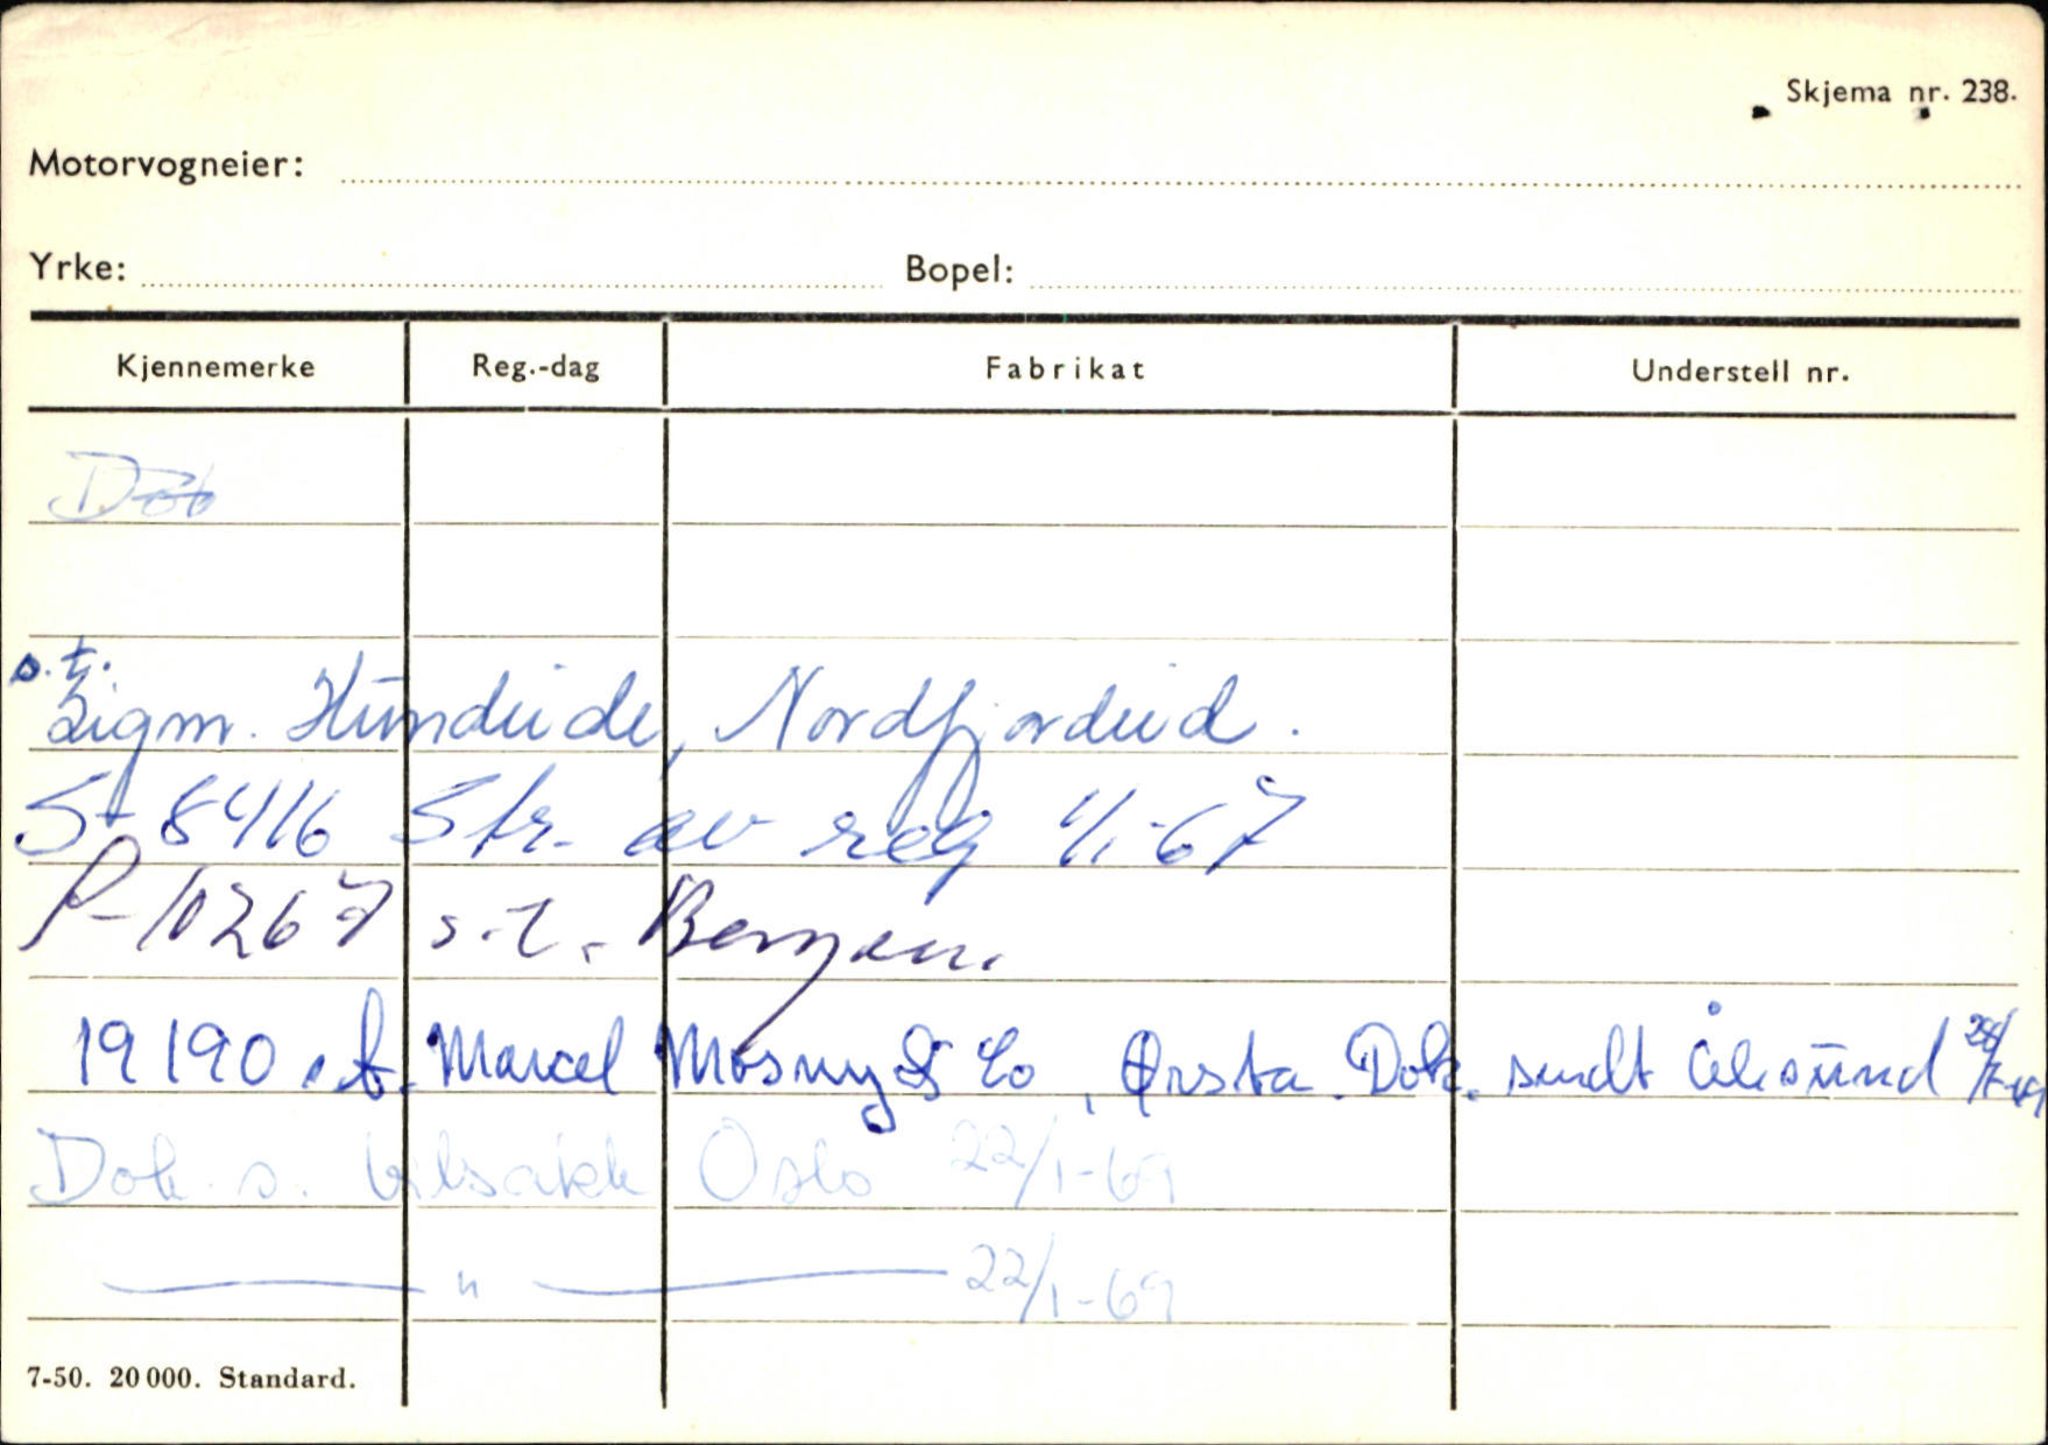 Skjema nr. 238.
Motorvogneier:
Yrke: Bopel:
Kjennemerke Reg.-dag Fabrikat Understell nr.
s.t.
Sigm. Hundeide, Nordfjordeid.
S-8416 Str. av reg 1/1-67
P-10267 s.t. Bergen.
19190 s.t. Marcel Mosny & Co, Ørsta. Dok. sendt Ålesund
Dok. s. bilsakk Oslo 22/1-69
— " — 22/1-69
7-50. 20 000. Standard.